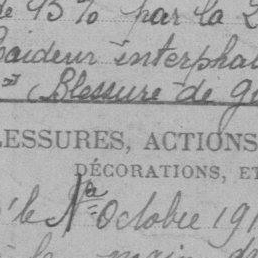 de 95% par la 2
Raideur interphal
Blessure de gu
LESSURES, ACTIONS
DÉCORATIONS, ET
le 1er octobre 191
à la main d